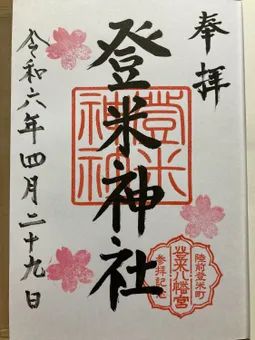 奉拝
登米神社
登米神社
令和六年四月二十九日
陸前登米町
登米八幡宮
参拝記念